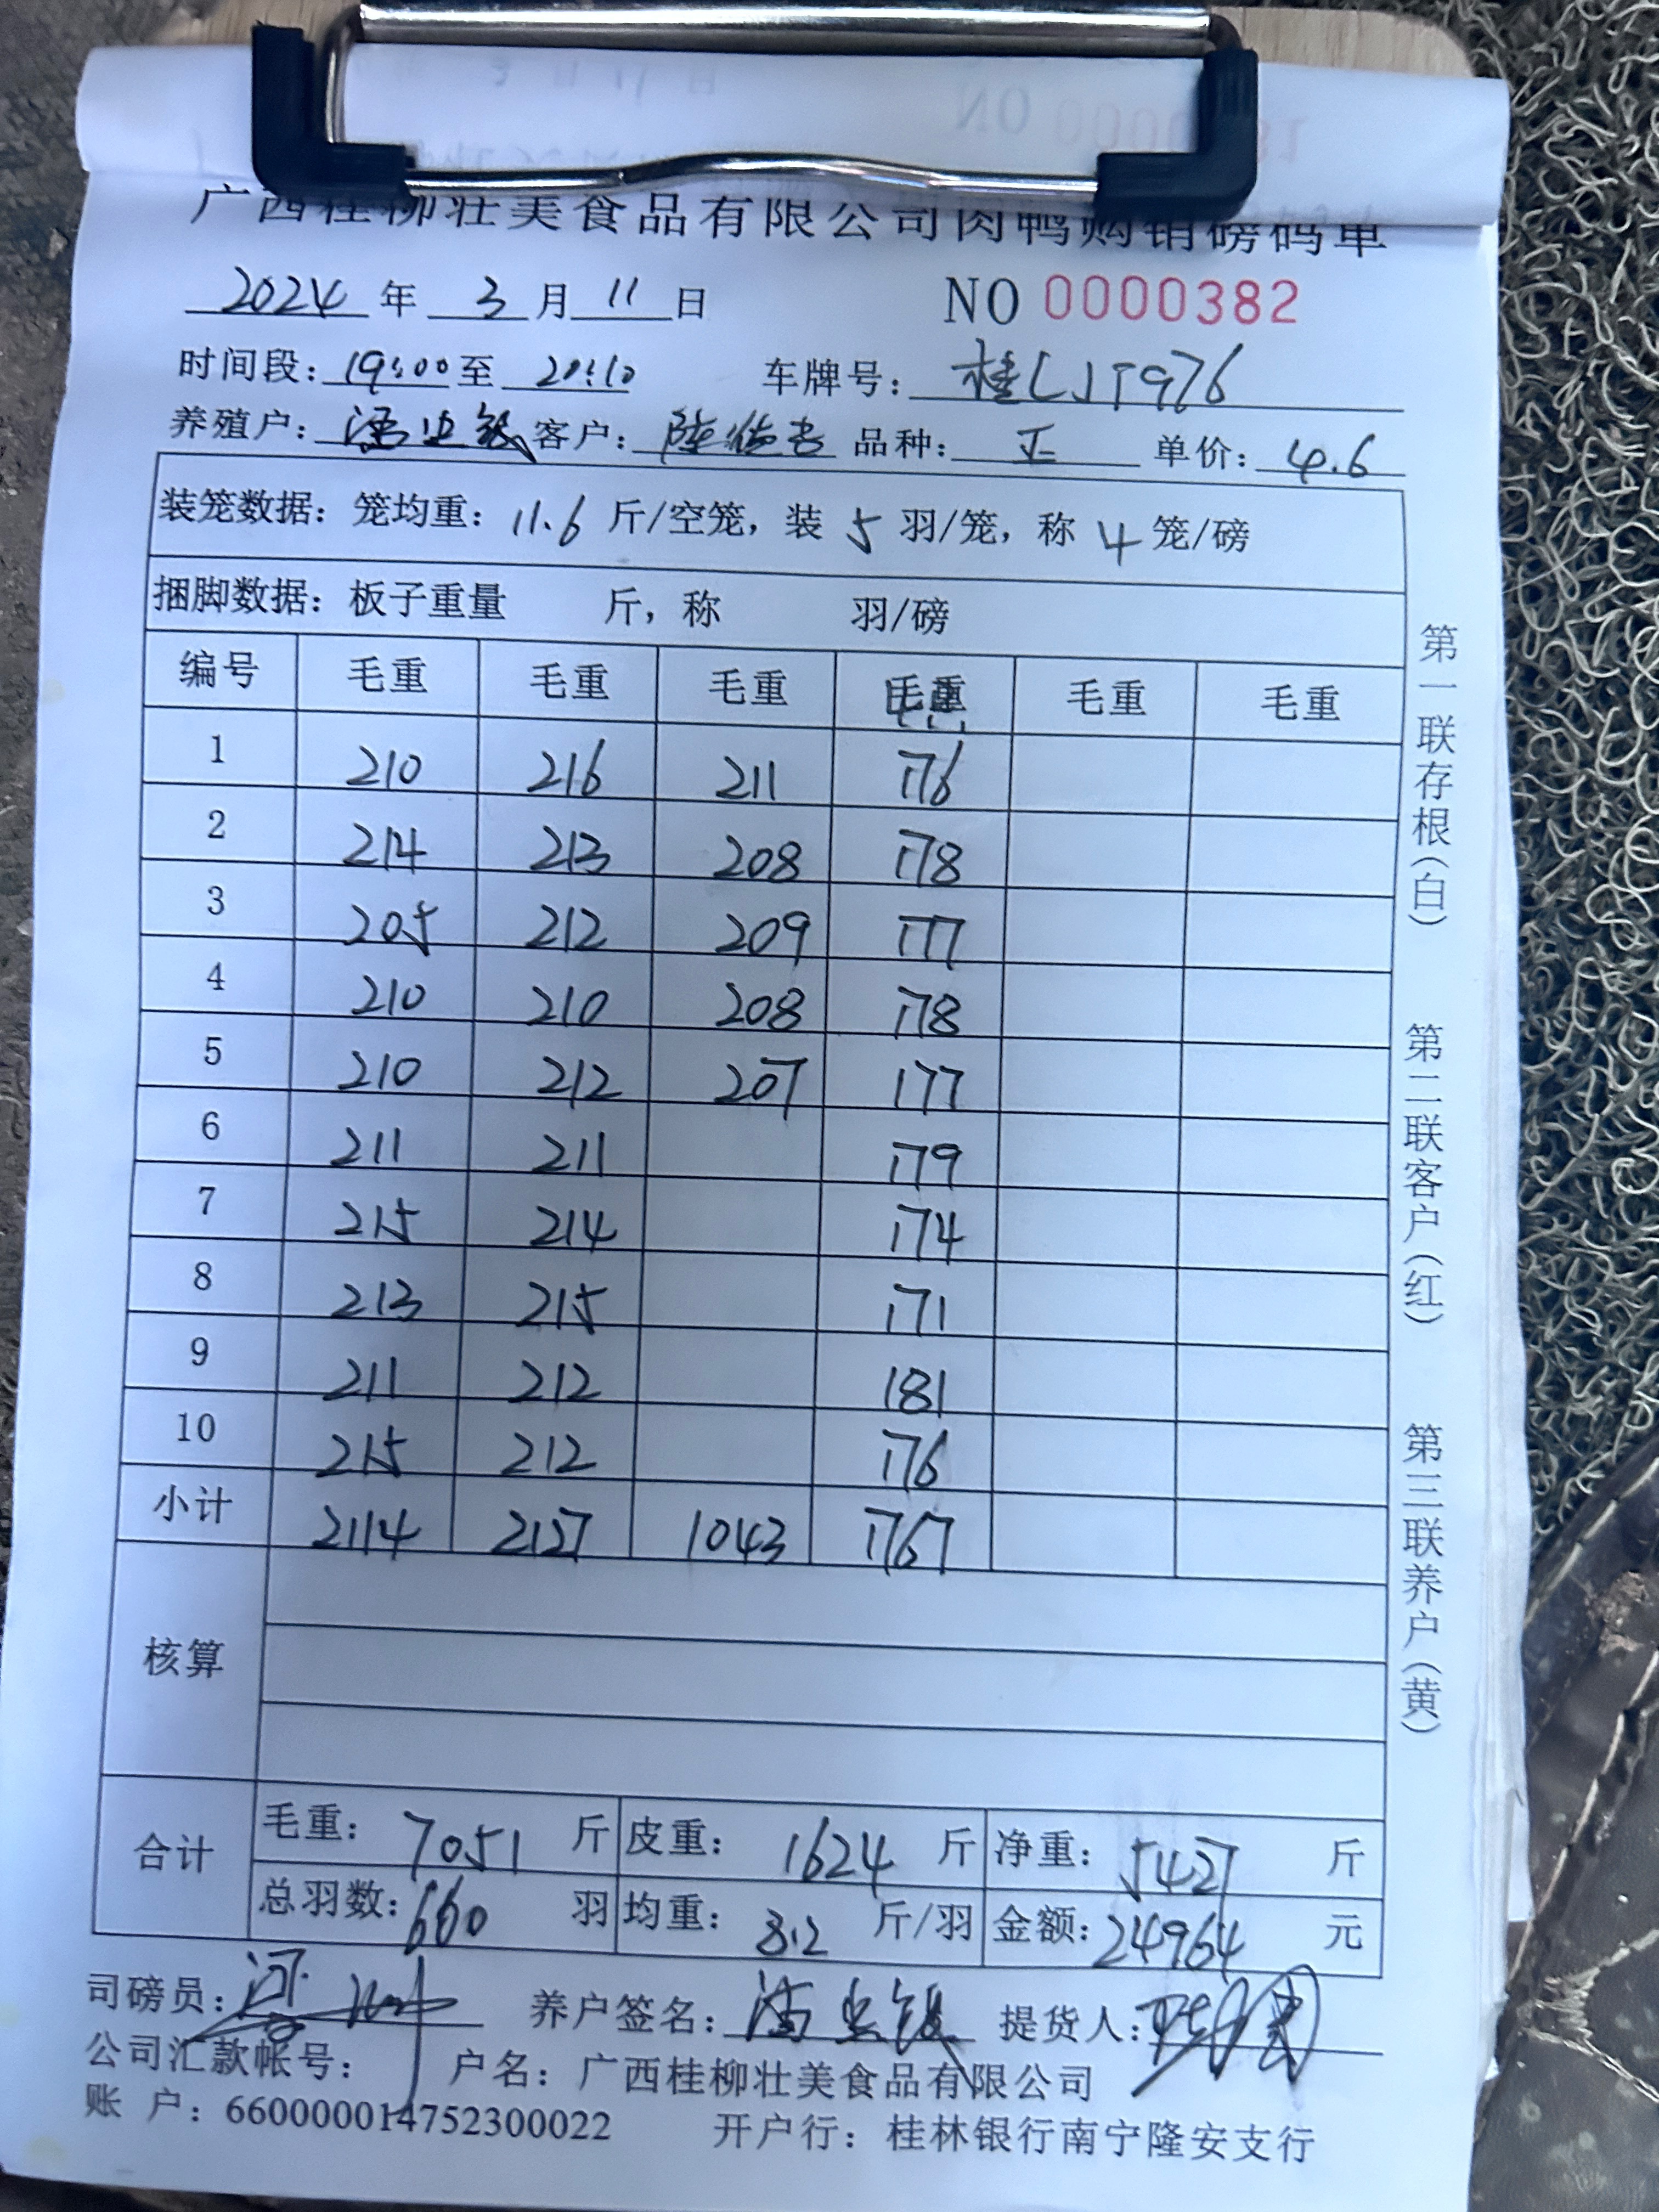 广西桂柳壮美食品有限公司肉鸭购销磅码单
2024 年 3 月 11 日 NO 0000382
时间段: 19:00 至 20:10 车牌号: 桂LJT976
养殖户: 潘业银 客户: 品种: 正 单价: 4.6
装笼数据: 笼均重: 11.6 斤/空笼, 装 5 羽/笼, 称 4 笼/磅
捆脚数据: 板子重量 斤, 称 羽/磅
编号 毛重 毛重 毛重 毛重 毛重 毛重
1 210 216 211 176
2 214 213 208 178
3 205 212 209 177
4 210 210 208 178
5 210 212 207 177
6 211 211 179
7 215 214 174
8 213 215 171
9 211 212 181
10 215 212 176
小计 2114 2127 1043 1767
核算
合计 毛重: 7051 斤 皮重: 1624 斤 净重: 5427 斤
总羽数: 660 羽 均重: 8.2 斤/羽 金额: 24964 元
司磅员: 养户签名: 潘业银 提货人:
公司汇款帐号: 户名: 广西桂柳壮美食品有限公司
账 户: 660000014752300022 开户行: 桂林银行南宁隆安支行
第一联存根(白) 第二联客户(红) 第三联养户(黄)